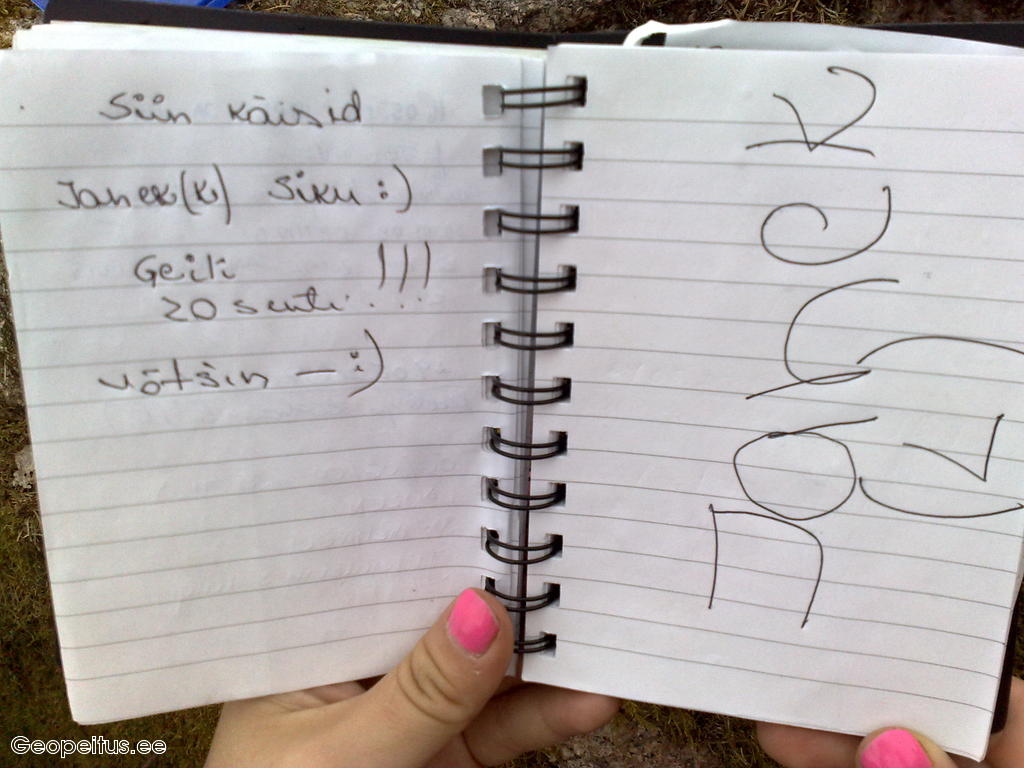 Siin käisid
Janek(k) Siku :)
Geili !!!
20 senti...
võtsin – :)
Geopeitus.ee